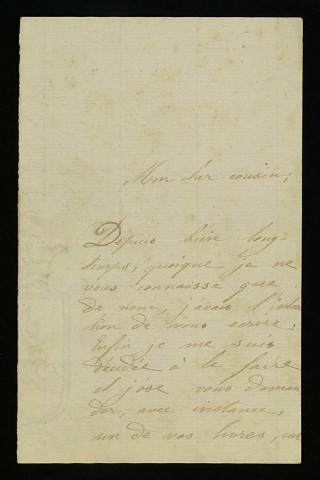 Mon cher cousin,
Depuis bien long-
temps, quoique je ne
vous connaisse que
de nom, j'avais l'inten
tion de vous ecrire.
Enfin je me suis
décidée à le faire
et j'ose vous deman
der, avec instance,
un de vos livres, car